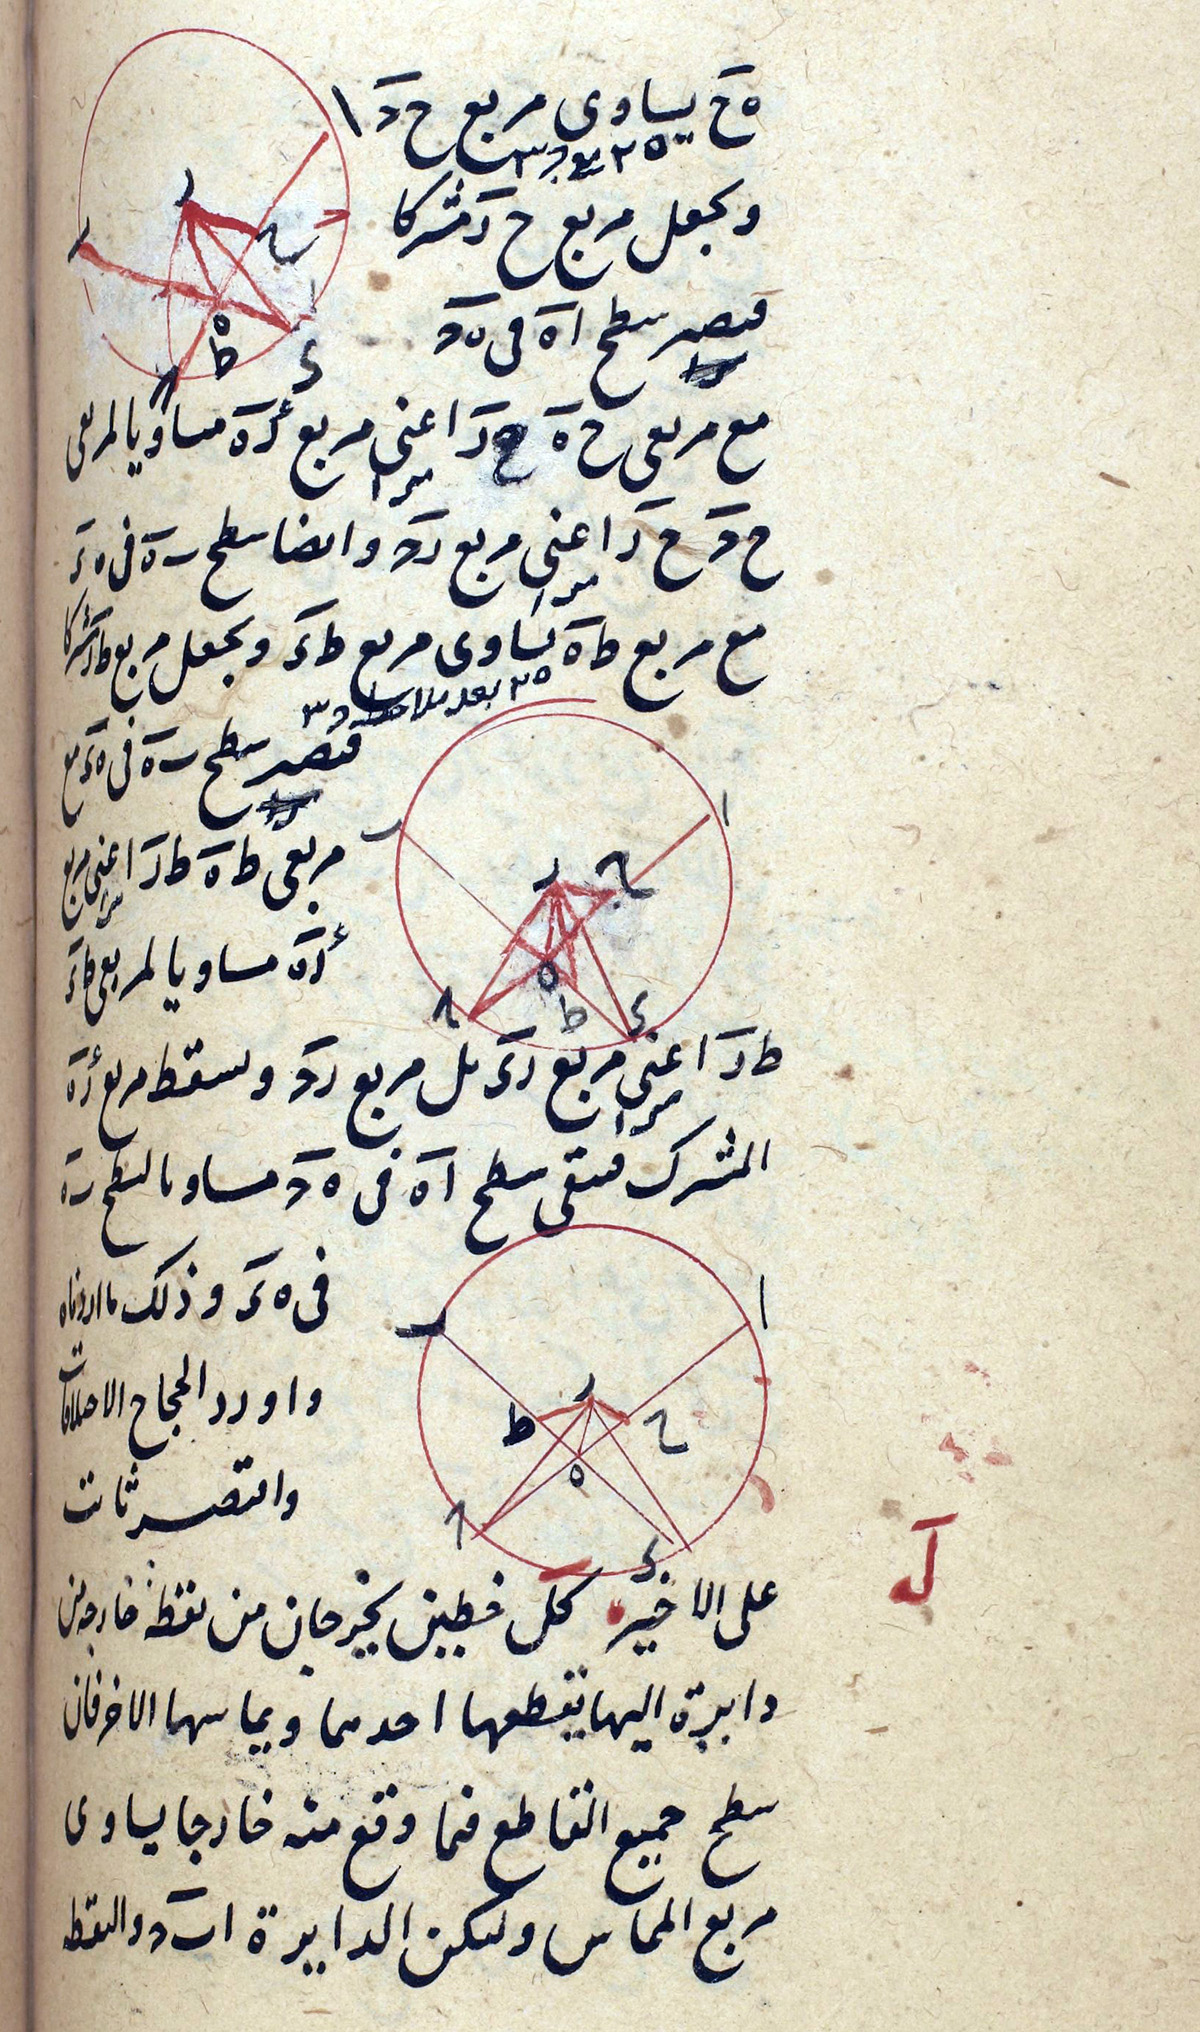 ه ح يساوى مربع ح د
ونجعل مربع ح ر مشتركا
فيصير سطح ا ه فى ه ح
مع مربعى ح ه ح ر اعنى مربع ر ه مساويا لمربعى
ح ح ح ر اعنى مربع ر ح وايضا سطح ب ه فى ه ء
مع مربع ط ه يساوى مربع ط ء ونجعل مربع ط ر مشتركا
فيصير سطح ب ه فى ه ء مع
مربعى ط ه ط ر اعنى مربع
ر ه مساويا لمربعى ط ء
ط ر اعنى مربع ر ء بل مربع ر ح ونسقط مربع ر ه
المشترك فيبقى سطح ا ه فى ه ح مساويا لسطح ب ه
فى ه ء وذلك ما اردناه
واورد الحجاج الاختلافات
واقتصر ثابت
على الاخير كل خطين يخرجان من نقطة خارجة من
دايرة اليها يقطعها احدهما ويماسها الاخر فان
سطح جميع القاطع فيما وقع منه خارجا يساوى
مربع المماس وليكن الدايرة ا ب ح والنقطة
ل